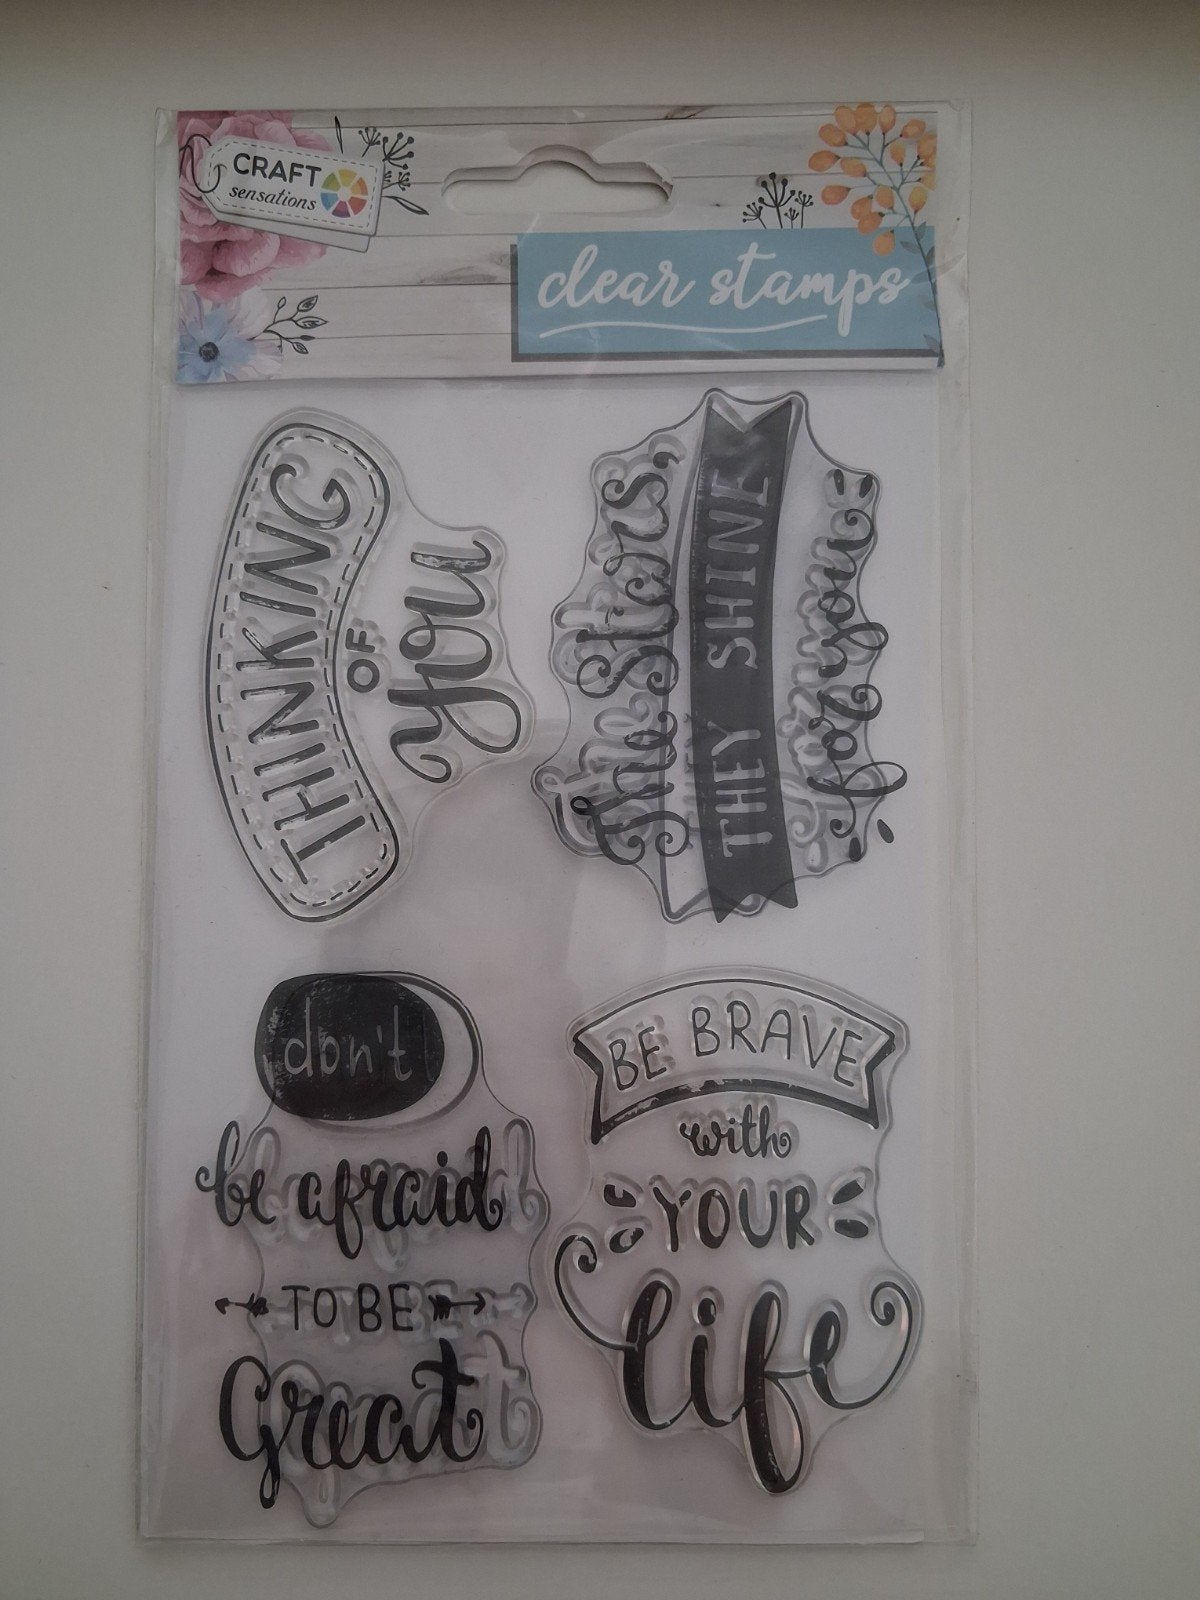 CRAFT
sensations
clear stamps
THINKING
OF
you
The Stars,
THEY SHINE
for you
don't
be afraid
TO BE
Great
BE BRAVE
with
YOUR
life